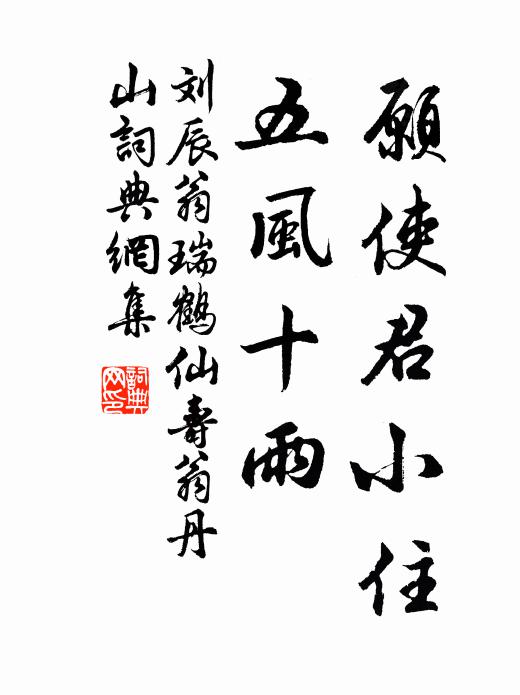 願使君小住
五風十雨
刘辰翁瑞鶴仙壽翁丹
山詞典網集
詞典网印